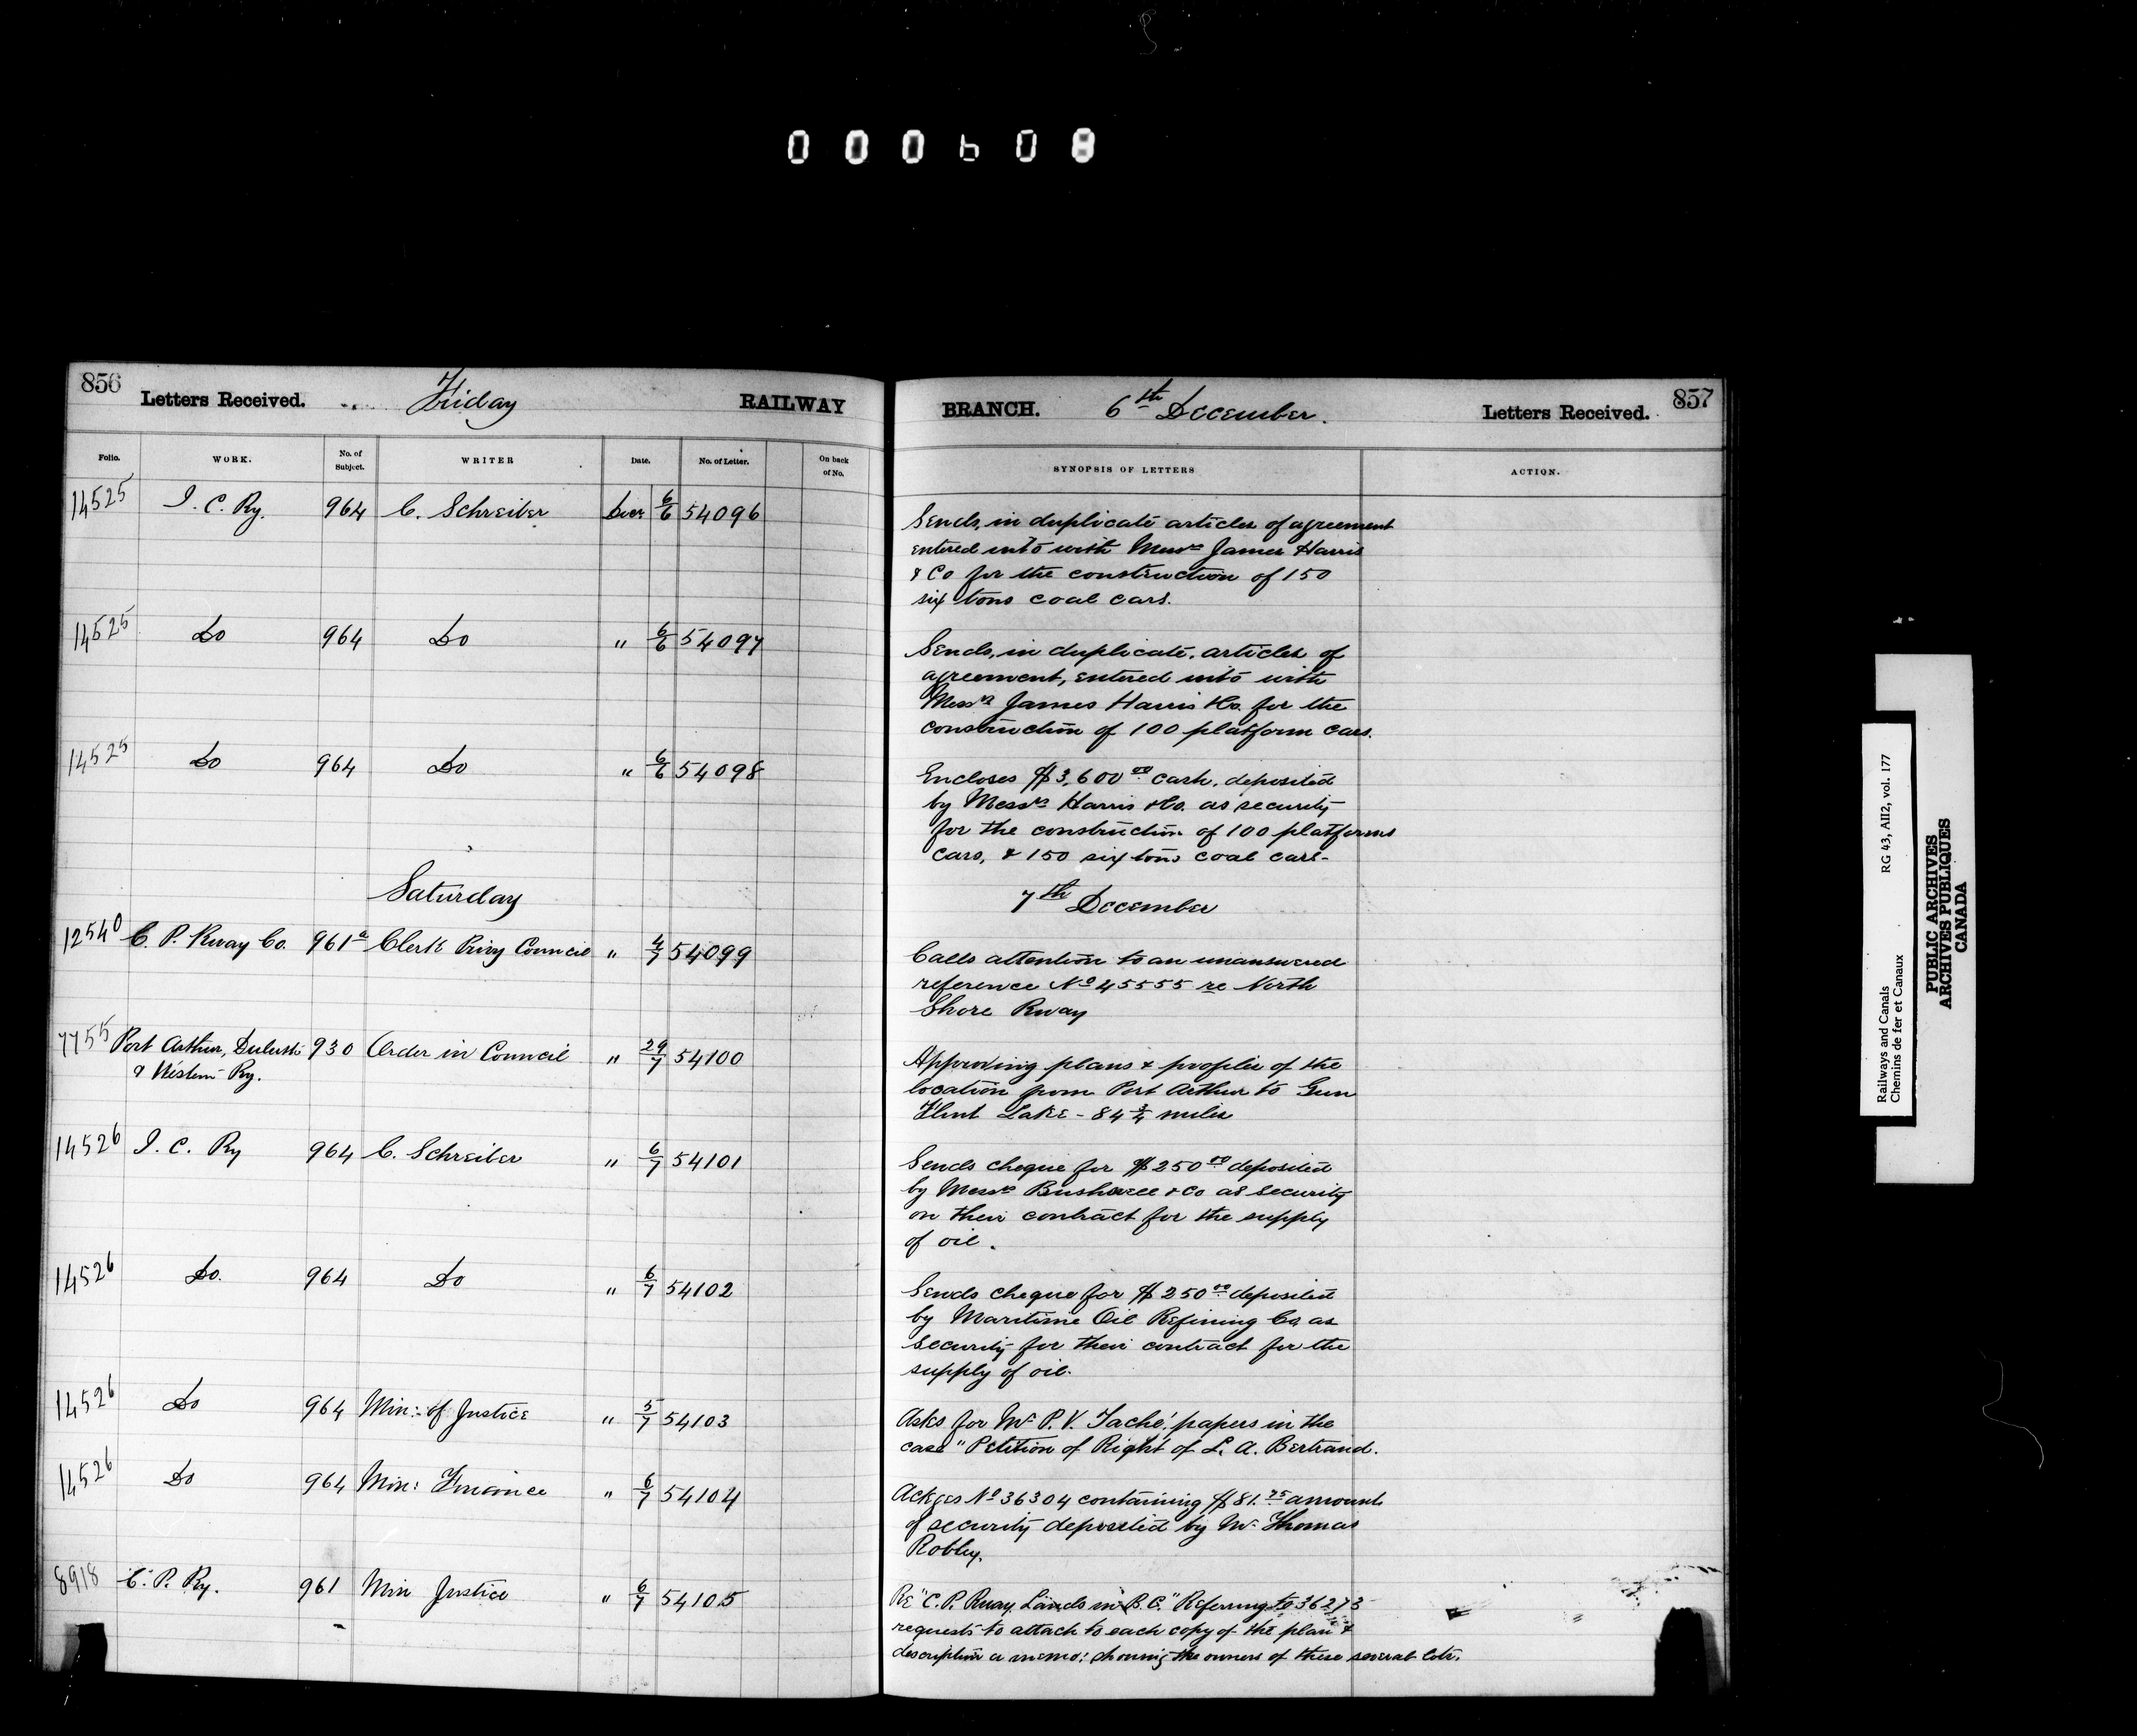 000608
856
Letters Received. Friday RAILWAY
BRANCH. 6th December. Letters Received. 857
Folio. WORK. No. of Subject. WRITER Date. No. of Letter. On back of No.
SYNOPSIS OF LETTERS ACTION.
14525 I. C. Ry. 964 C. Schreiber Decr 6/6 54096
Sends, in duplicate articles of agreement
entered into with Messrs James Harris
& Co for the construction of 150
six tons coal cars.
14525 Do 964 Do " 6/6 54097
Sends, in duplicate, articles of
agreement, entered into with
Messrs James Harris & Co. for the
construction of 100 platform cars.
14525 Do 964 Do " 6/6 54098
Encloses $3,600 00 cash, deposited
by Messrs Harris & Co. as security
for the construction of 100 platforms
cars, & 150 six tons coal cars.
Saturday 7th December
12540 C. P. Rway Co. 961a Clerk Privy Council " 4/7 54099
Calls attention to an unanswered
reference No 45555 re North
Shore Rway
7755 Port Arthur, Duluth 930 Order in Council " 29/7 54100
& Western Ry.
Approving plans & profiles of the
location from Port Arthur to Gun
Flint Lake - 84 3/4 miles
14526 I. C. Ry 964 C. Schreiber " 6/7 54101
Sends cheque for $250 00 deposited
by Messrs Bushnell & Co as security
on their contract for the supply
of oil.
14526 Do. 964 Do " 6/7 54102
Sends cheque for $250 00 deposited
by Maritime Oil Refining Co. as
security for their contract for the
supply of oil.
14526 Do 964 Min: of Justice " 5/7 54103
Asks for Mr P. V. Taché' papers in the
case "Petition of Right of L. A. Bertrand.
14526 Do 964 Min: Finance " 6/7 54104
Ackges No 36304 containing $81.75 amount
of security deposited by Mr Thomas
Robley.
8918 C. P. Ry. 961 Min Justice " 6/7 54105
Re "C. P. Rway Lands in B. C." Referring to 36273
requests to attach to each copy of the plan &
description a memo: showing the owners of these several lots.
Railways and Canals RG 43, AII2, vol. 177
Chemins de fer et Canaux
PUBLIC ARCHIVES
ARCHIVES PUBLIQUES
CANADA